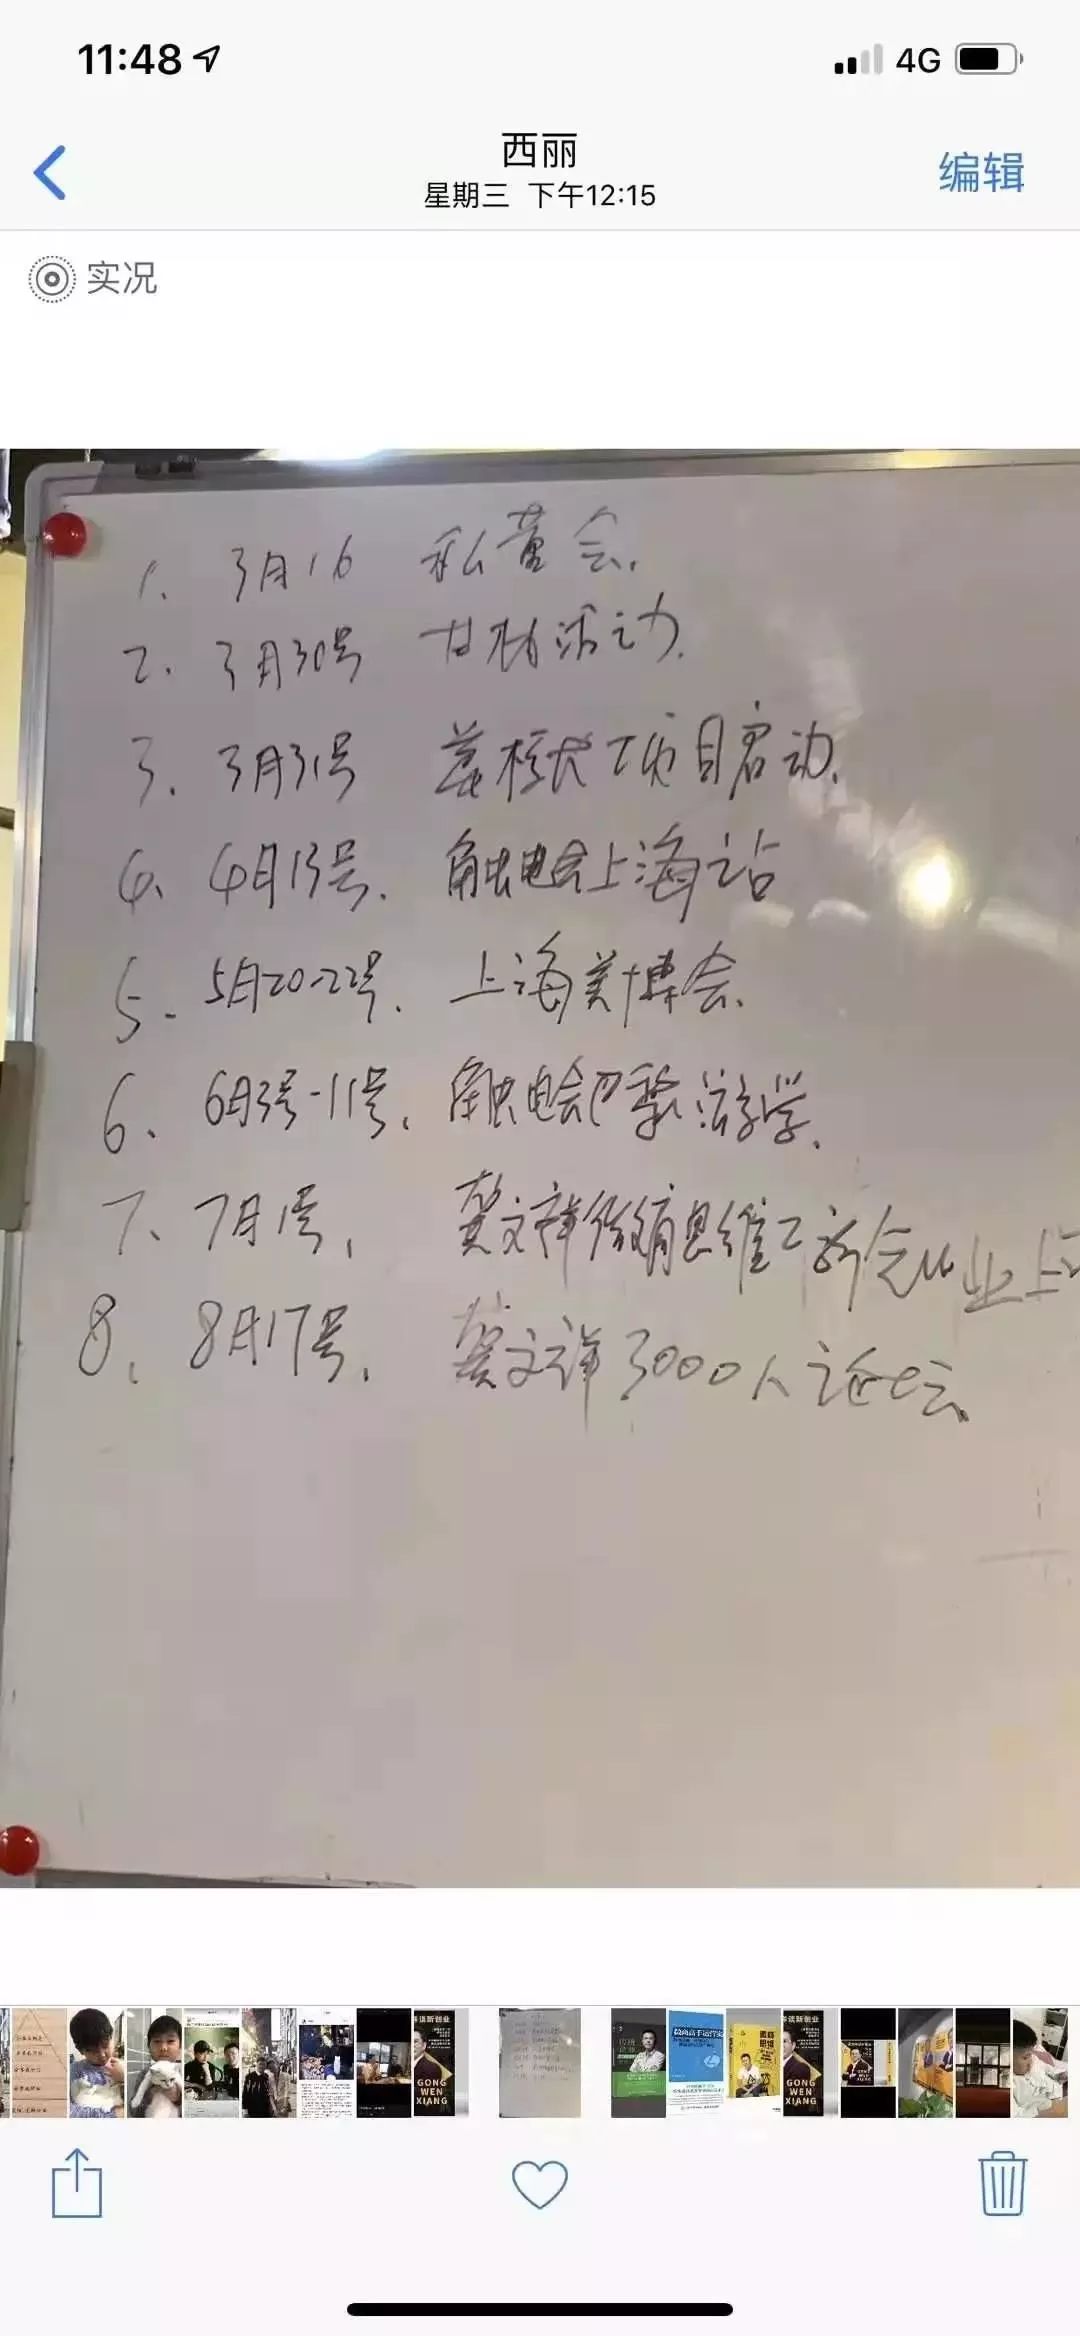 11:48
4G
西丽
编辑
星期三 下午12:15
实况
1、3月16 私董会.
2、3月30号 活动.
3、3月31号 项目启动.
4、4月13号、触电会上海站
5、5月20-22号、上海美博会.
6、6月3号-11号、触电会巴黎游学.
7、7月1号, 龚文祥微商思维
8、8月17号、龚文祥3000人论坛
GONG
WEN
XIANG
GONG
WEN
XIANG